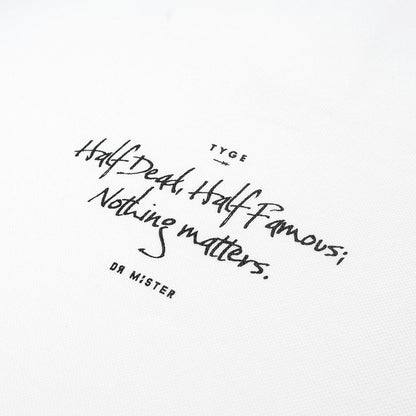 TYGE
Half Dead, Half Famous;
Nothing matters.
DЯ MiSTER